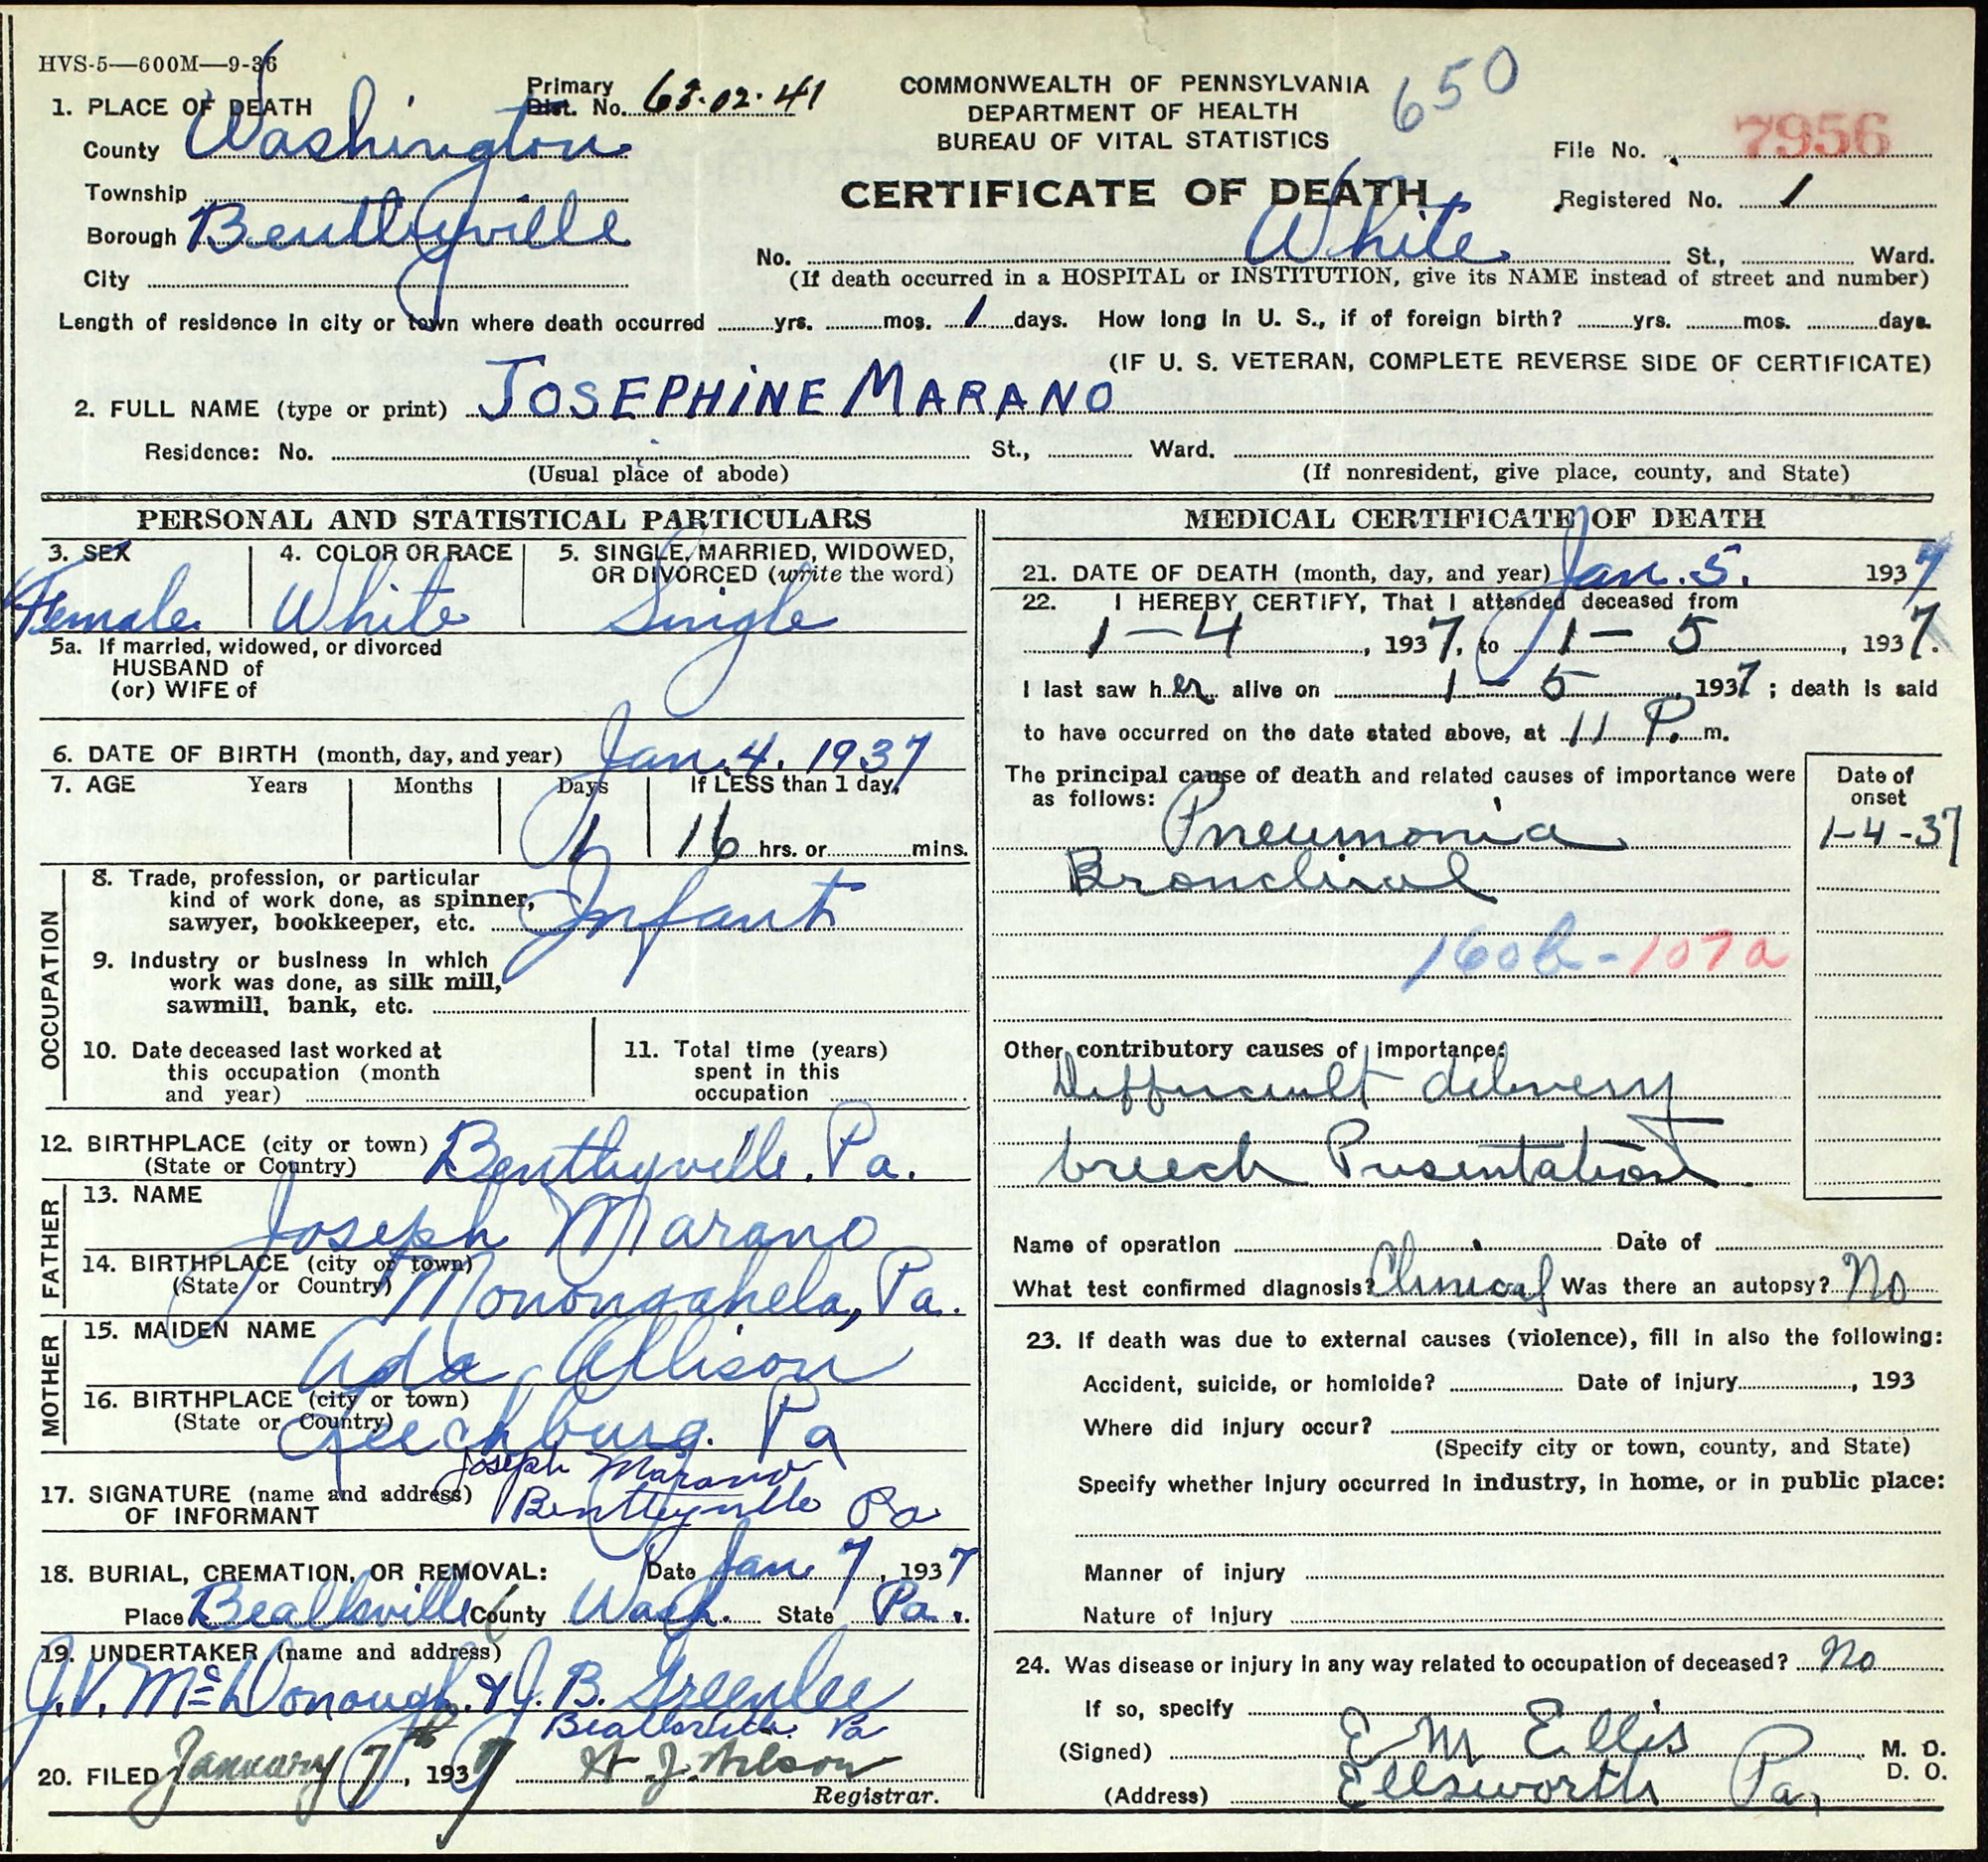 HVS-5—600M—9-36
1. PLACE OF DEATH
Primary Dist. No. 63-02-41
COMMONWEALTH OF PENNSYLVANIA
DEPARTMENT OF HEALTH
BUREAU OF VITAL STATISTICS
650
County Washington
File No. 7956
Township
CERTIFICATE OF DEATH
Registered No. 1
Borough Bentleyville
No. White St., Ward.
(If death occurred in a HOSPITAL or INSTITUTION, give its NAME instead of street and number)
City
Length of residence in city or town where death occurred yrs. mos. 1 days. How long in U. S., if of foreign birth? yrs. mos. days.
(IF U. S. VETERAN, COMPLETE REVERSE SIDE OF CERTIFICATE)
2. FULL NAME (type or print) JOSEPHINE MARANO
Residence: No. St., Ward.
(Usual place of abode) (If nonresident, give place, county, and State)
PERSONAL AND STATISTICAL PARTICULARS
3. SEX 4. COLOR OR RACE 5. SINGLE, MARRIED, WIDOWED,
OR DIVORCED (write the word)
Female White Single
5a. If married, widowed, or divorced
HUSBAND of
(or) WIFE of
6. DATE OF BIRTH (month, day, and year) Jan. 4. 1937
7. AGE Years Months Days If LESS than 1 day,
1 16 hrs. or mins.
OCCUPATION
8. Trade, profession, or particular
kind of work done, as spinner,
sawyer, bookkeeper, etc. Infant
9. Industry or business in which
work was done, as silk mill,
sawmill, bank, etc.
10. Date deceased last worked at
this occupation (month
and year)
11. Total time (years)
spent in this
occupation
12. BIRTHPLACE (city or town) Bentleyville. Pa.
(State or Country)
FATHER
13. NAME
Joseph Marano
14. BIRTHPLACE (city or town)
(State or Country) Monongahela, Pa.
MOTHER
15. MAIDEN NAME
Ada Allison
16. BIRTHPLACE (city or town)
(State or Country) Leechburg. Pa
Joseph Marano
17. SIGNATURE (name and address)
OF INFORMANT Bentleyville Pa
18. BURIAL, CREMATION, OR REMOVAL: Date Jan 7, 1937
Place Beallsville County Wash. State Pa.
19. UNDERTAKER (name and address)
J. V. McDonough & J. B. Greenlee
Beallsville. Pa
20. FILED January 7th, 1937 H. J. Wilson
Registrar.
MEDICAL CERTIFICATE OF DEATH
21. DATE OF DEATH (month, day, and year) Jan. 5. 1937
22. I HEREBY CERTIFY, That I attended deceased from
1-4, 1937, to 1-5, 1937.
I last saw her alive on 1-5, 1937; death is said
to have occurred on the date stated above, at 11 P. m.
The principal cause of death and related causes of importance were
as follows:
Date of
onset
Pneumonia 1-4-37
Bronchial
160b-107a
Other contributory causes of importance:
Difficult delivery
breech Presentation
Name of operation Date of
What test confirmed diagnosis? Clinical Was there an autopsy? No
23. If death was due to external causes (violence), fill in also the following:
Accident, suicide, or homicide? Date of injury, 193
Where did injury occur?
(Specify city or town, county, and State)
Specify whether injury occurred in industry, in home, or in public place:
Manner of injury
Nature of injury
24. Was disease or injury in any way related to occupation of deceased? No
If so, specify
(Signed) E M Ellis M. D.
D. O.
(Address) Ellsworth Pa,